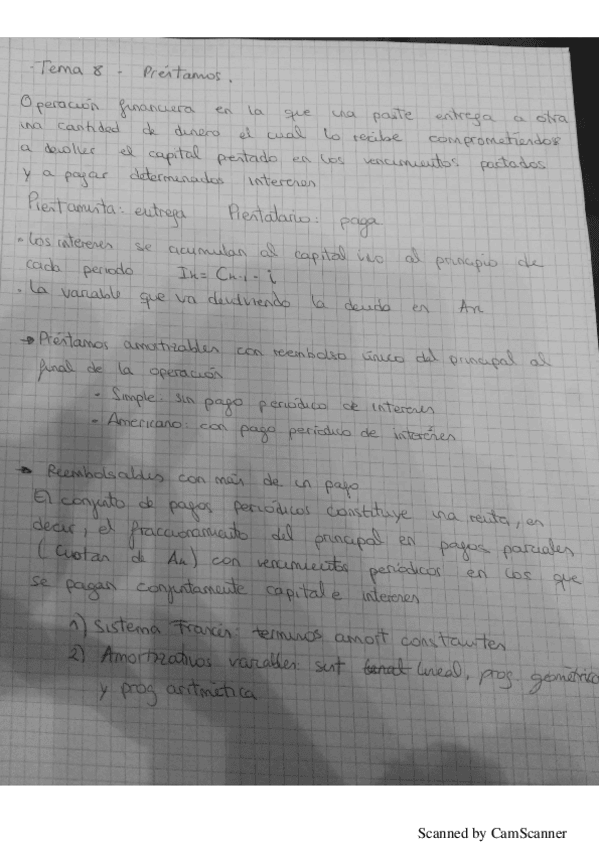 - Tema 8 - Préstamos.
Operación financiera en la que una parte entrega a otra
una cantidad de dinero el cual lo recibe comprometiendos
a devolver el capital prestado en los vencimientos pactados
y a pagar determinados intereses
Prestamista: entrega Prestatario: paga
- Los intereses se acumulan al capital vivo al principio de
cada periodo Ik = Ck-1 · i
- La variable que va devolviendo la deuda es Ak
→ Préstamos amortizables con reembolso único del principal al
final de la operación
- Simple: sin pago periódico de intereses
- Americano: con pago periódico de intereses
→ Reembolsables con más de un pago
El conjunto de pagos periódicos constituye una renta, es
decir, el fraccionamiento del principal en pagos parciales
(cuotas de Ak) con vencimientos periódicos en los que
se pagan conjuntamente capital e intereses
1) Sistema Francés: terminos amort constantes
2) Amortizativos variables: sist lineal, prog. geométrica
y prog aritmética
Scanned by CamScanner